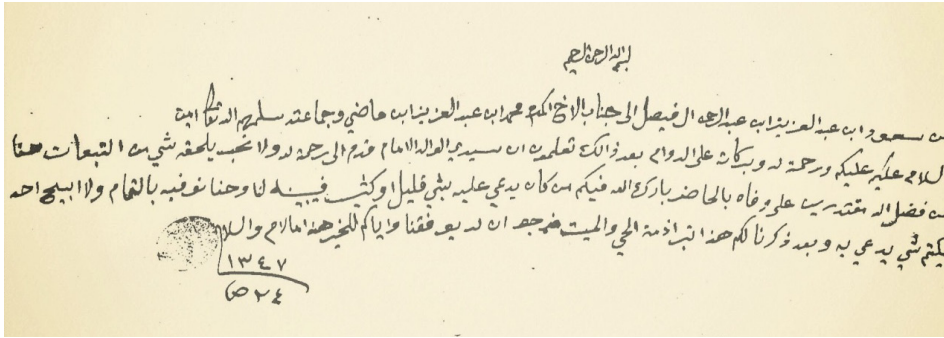 بسم الله الرحمن الرحيم
من سعود ابن عبد العزيز ابن عبد الرحمن ال فيصل الى جناب الاخ المكرم محمد ابن عبد العزيز ابن ماضي وجماعته سلمهم الله تعالى امين
السلام عليكم ورحمة الله وبركاته على الدوام بعد ذالك تعلمون ان سيدي الوالد الامام قدم الى رحمة الله ولا نحب يلحقه شي من التبعات حنا
من فضل الله مقتدرين على وفاه بالحاضر بارك الله فيكم من كان يدعي عليه بشي قليل او كثير يبينه لنا وحنا نوفيه بالتمام ولا ابيح احد
يكتم شي يدعي به وبعد ذكرنا لكم هذا تبرا ذمة الحي والميت نرجو ان الله يوفقنا واياكم للخير هذا ما لزم والسلام
١٣٤٧
٢٤ ص